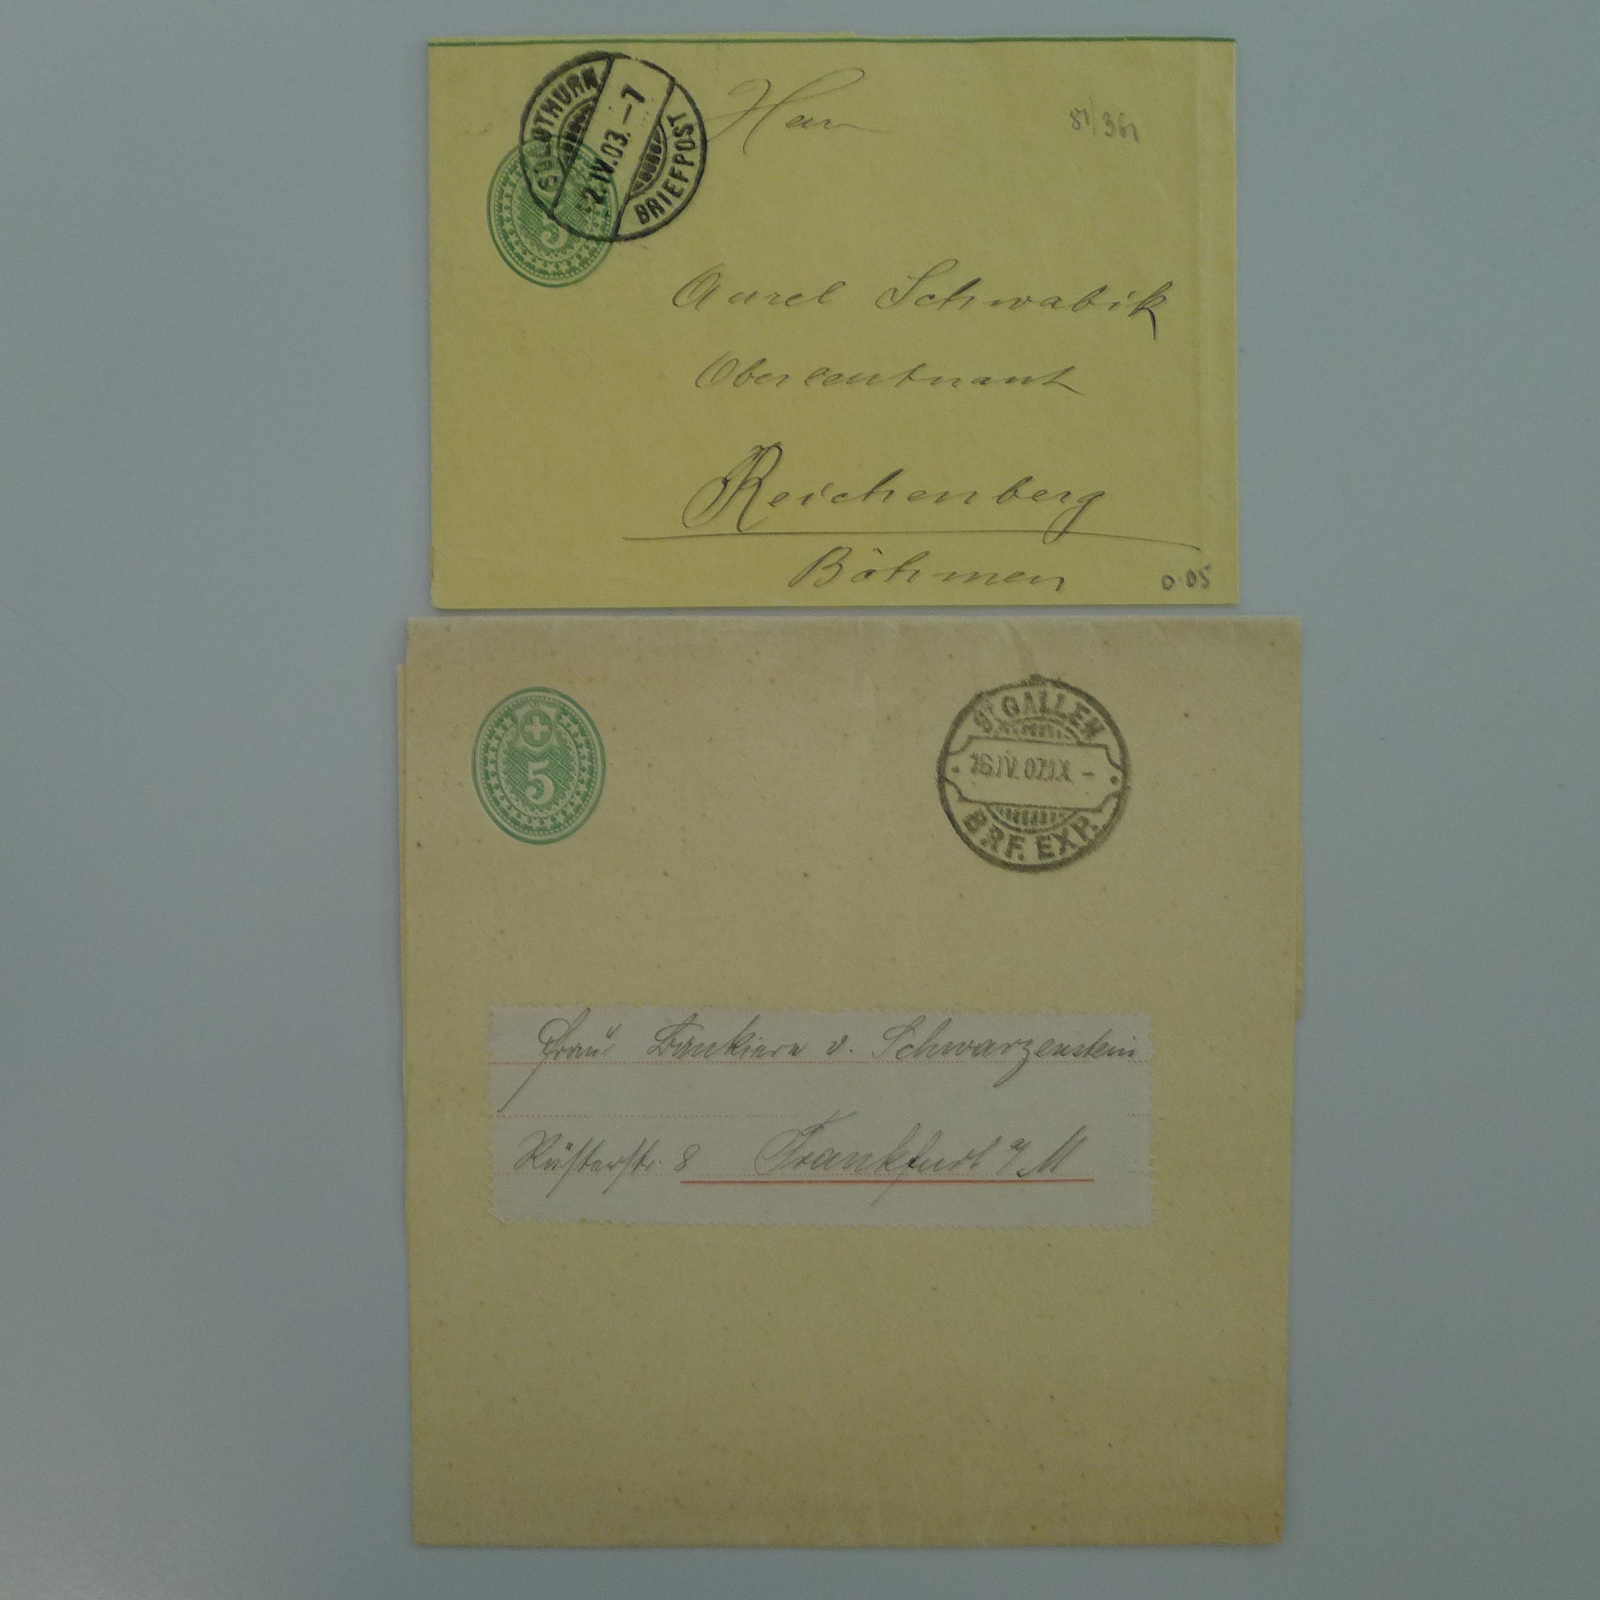 SOLOTHURN
2.IV.03.-7
BRIEFPOST
5
Herrn
Aurel Schwabik
Oberleutnant
Reichenberg
Böhmen
0.05
ST. GALLEN
16.IV.07.IX-
BRF. EXP.
5
Frau Bankiere v. Schwarzenstein
Rüsterstr. 8 Frankfurt a/M